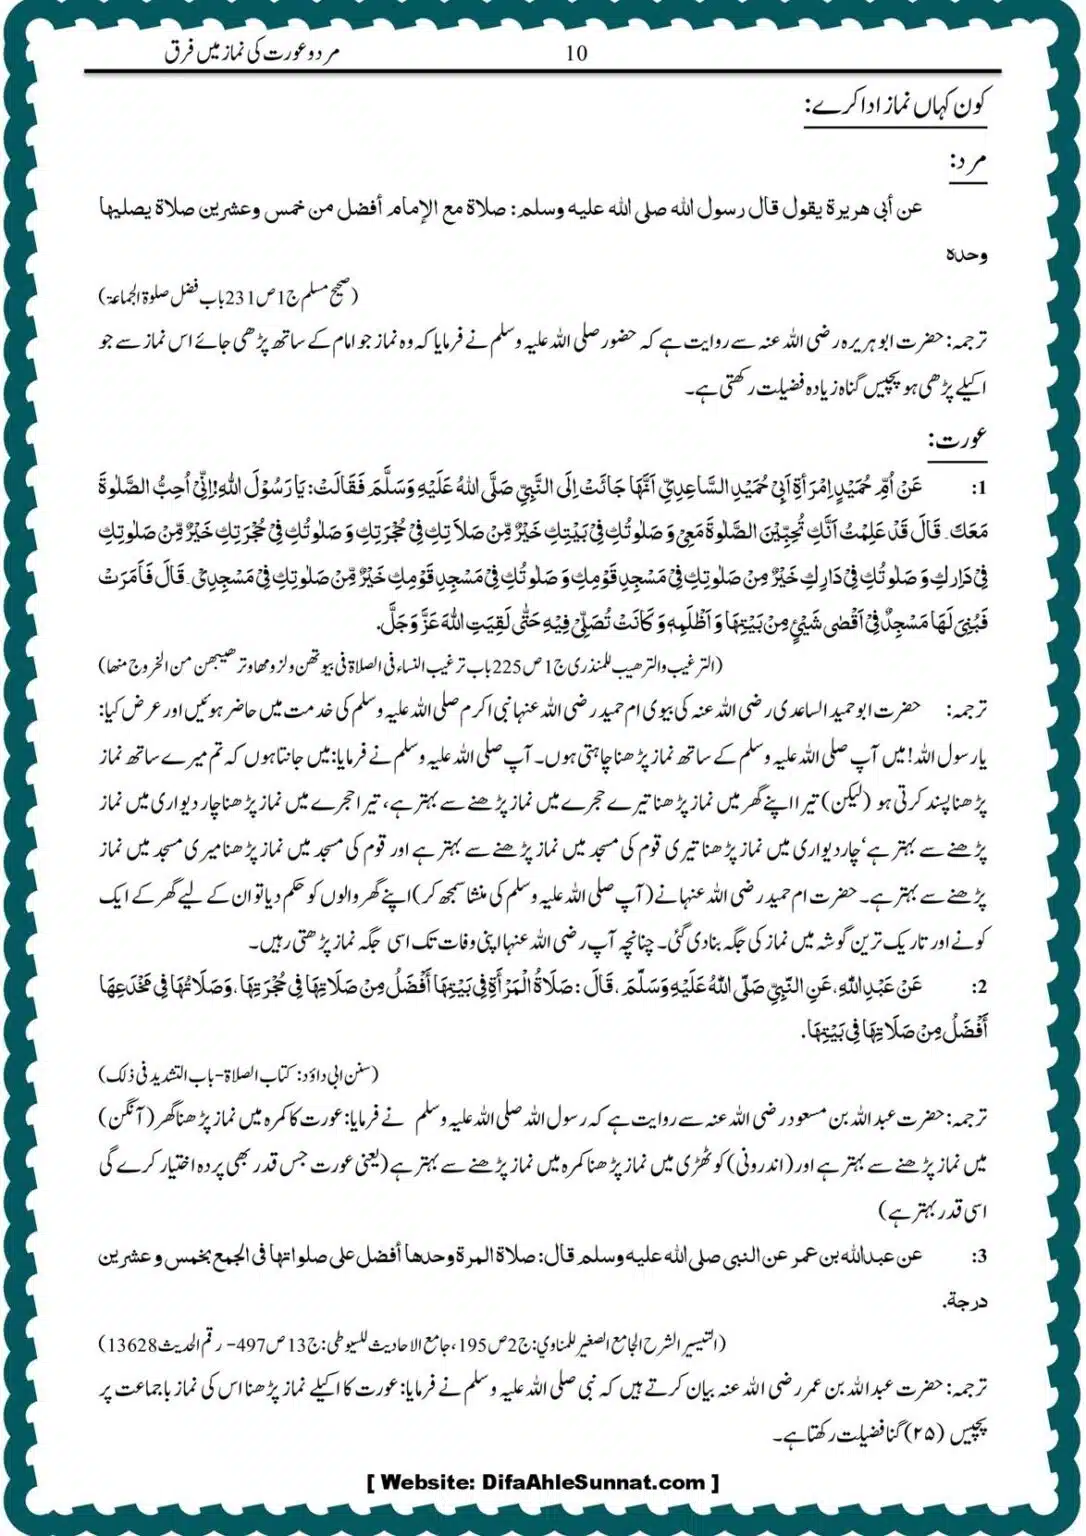 مردوعورت کی نماز میں فرق 10
کون کہاں نماز ادا کرے:
مرد:
عن أبی هریرة یقول قال رسول الله صلی الله علیه وسلم: صلاة مع الإمام أفضل من خمس وعشرین صلاة یصلیها
وحده
(صحیح مسلم ج1ص231باب فضل صلوة الجماعة)
ترجمہ: حضرت ابوہریرہ رضی اللہ عنہ سے روایت ہے کہ حضور صلی اللہ علیہ وسلم نے فرمایا کہ وہ نماز جو امام کے ساتھ پڑھی جائے اس نماز سے جو
اکیلے پڑھی ہو پچیس گناہ زیادہ فضیلت رکھتی ہے۔
عورت:
1: عَنْ اُمِّ حُمَیْدٍ اِمْرَأَةِ اَبِیْ حُمَیْدِ السَّاعِدِیِّ اَنَّهَا جَائَتْ اِلَی النَّبِیِّ صَلَّی اللهُ عَلَیْهِ وَسَلَّمَ فَقَالَتْ: یَارَسُوْلَ اللهِ! اِنِّیْ اُحِبُّ الصَّلٰوةَ
مَعَكَ۔ قَالَ قَدْ عَلِمْتُ اَنَّكِ تُحِبِّیْنَ الصَّلٰوةَ مَعِیْ وَ صَلٰوتُكِ فِیْ بَیْتِكِ خَیْرٌ مِّنْ صَلاَ تِكِ فِیْ حُجْرَتِكِ وَ صَلٰوتُكِ فِیْ حُجْرَتِكِ خَیْرٌ مِّنْ صَلٰوتِكِ
فِیْ دَارِكِ وَ صَلٰوتُكِ فِیْ دَارِكِ خَیْرٌ مِنْ صَلٰوتِكِ فِیْ مَسْجِدِ قَوْمِكِ وَ صَلٰوتُكِ فِیْ مَسْجِدِ قَوْمِكِ خَیْرٌ مِّنْ صَلٰوتِكِ فِیْ مَسْجِدِیْ۔ قَالَ فَاَمَرَتْ
فَبُنِیَ لَهَا مَسْجِدٌ فِیْ اَقْصٰی شَیْئٍ مِنْ بَیْتِهَا وَ اَظْلَمِهٖ وَ كَانَتْ تُصَلِّیْ فِیْهِ حَتّٰی لَقِیَتِ اللهَ عَزَّ وَجَلَّ.
(الترغیب والترهیب للمنذری ج1ص225 باب ترغیب النساء فی الصلاة فی بیوتهن ولزومها وترهیبهن من الخروج منها)
ترجمہ: حضرت ابوحمید الساعدی رضی اللہ عنہ کی بیوی ام حمید رضی اللہ عنہا نبی اکرم صلی اللہ علیہ وسلم کی خدمت میں حاضر ہوئیں اور عرض کیا:
یارسول اللہ! میں آپ صلی اللہ علیہ وسلم کے ساتھ نماز پڑھنا چاہتی ہوں۔ آپ صلی اللہ علیہ وسلم نے فرمایا: میں جانتا ہوں کہ تم میرے ساتھ نماز
پڑھنا پسند کرتی ہو (لیکن) تیرا اپنے گھر میں نماز پڑھنا تیرے حجرے میں نماز پڑھنے سے بہتر ہے، تیرا حجرے میں نماز پڑھنا چار دیواری میں نماز
پڑھنے سے بہتر ہے‘ چار دیواری میں نماز پڑھنا تیری قوم کی مسجد میں نماز پڑھنے سے بہتر ہے اور قوم کی مسجد میں نماز پڑھنا میری مسجد میں نماز
پڑھنے سے بہتر ہے۔ حضرت ام حمید رضی اللہ عنہا نے (آپ صلی اللہ علیہ وسلم کی منشا سمجھ کر) اپنے گھر والوں کو حکم دیا تو ان کے لیے گھر کے ایک
کونے اور تاریک ترین گوشہ میں نماز کی جگہ بنا دی گئی۔ چنانچہ آپ رضی اللہ عنہا اپنی وفات تک اسی جگہ نماز پڑھتی رہیں۔
2: عَنْ عَبْدِ اللهِ، عَنِ النَّبِیِّ صَلَّى اللهُ عَلَیْهِ وَسَلَّمَ، قَالَ: صَلَاةُ الْمَرْأَةِ فِی بَیْتِهَا أَفْضَلُ مِنْ صَلَاتِهَا فِی حُجْرَتِهَا، وَصَلَاتُهَا فِی مَخْدَعِهَا
أَفْضَلُ مِنْ صَلَاتِهَا فِی بَیْتِهَا.
(سنن ابی داؤد: کتاب الصلاة- باب التشدید فی ذلک)
ترجمہ: حضرت عبد اللہ بن مسعود رضی اللہ عنہ سے روایت ہے کہ رسول اللہ صلی اللہ علیہ وسلم نے فرمایا: عورت کا کمرہ میں نماز پڑھنا گھر (آنگن)
میں نماز پڑھنے سے بہتر ہے اور (اندرونی) کوٹھڑی میں نماز پڑھنا کمرہ میں نماز پڑھنے سے بہتر ہے (یعنی عورت جس قدر بھی پردہ اختیار کرے گی
اسی قدر بہتر ہے)
3: عن عبدالله بن عمر عن النبی صلی الله علیه وسلم قال: صلاة المرة وحدها أفضل علی صلواتها فی الجمع بخمس وعشرین
درجة.
(التیسیر الشرح الجامع الصغیر للمناوي: ج2ص195، جامع الاحادیث للسیوطی: ج13ص497- رقم الحدیث 13628)
ترجمہ: حضرت عبد اللہ بن عمر رضی اللہ عنہ بیان کرتے ہیں کہ نبی صلی اللہ علیہ وسلم نے فرمایا: عورت کا اکیلے نماز پڑھنا اس کی نماز باجماعت پر
پچیس (۲۵) گنا فضیلت رکھتا ہے۔
[ Website: DifaAhleSunnat.com ]